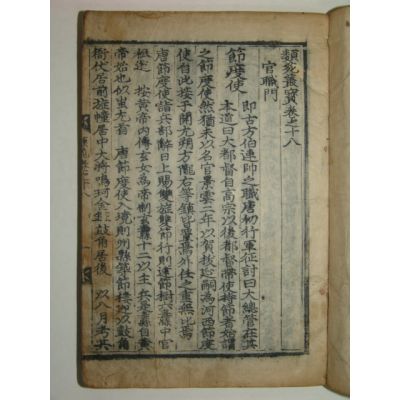 類苑叢寶卷之十八
官職門
節度使 即古方伯連帥之職唐初行軍征討曰大總管在其
本道曰大都督自高宗以後都督帶使持節者始謂
之節度使然猶未以名官景雲二年以賀拔延嗣爲河西節度
使自此接乎開元朔方隴右等鎮皆置焉外任之重無比焉
唐節度使詣兵部辭日上賜雙旌雙節行則建節樹六纛中官
祗送 按黃帝內傳玄女爲帝制玄纛十二以主兵六纛自黃
帝始也如蚩尤首 唐節度使入境則州縣築節樓迎以鼓角
衙仗居前旌幢居中大將鳴珂金鉦鼓角居後 以八月考其